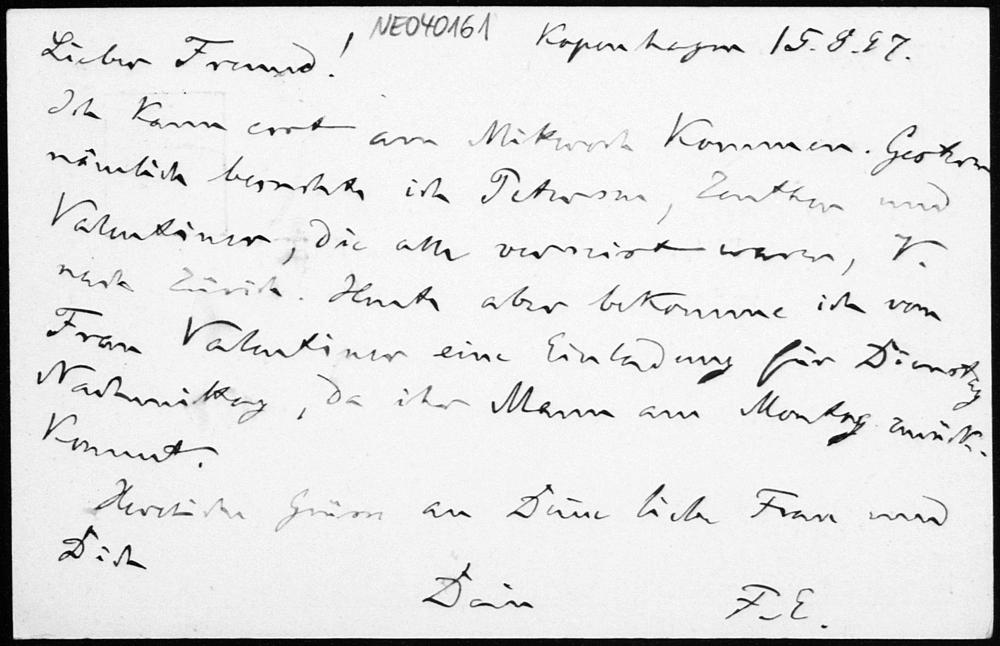 NE040161
Kopenhagen 15.8.27.
Lieber Freund!
Ich kann erst am Mittwoch kommen. Gestern
nämlich besuchte ich Petersen, Zeuthen und
Valentiner, die alle verreist waren, V.
nach Zürich. Heute aber bekomme ich von
Frau Valentiner eine Einladung für Dienstag
Nachmittag, da ihr Mann am Montag zurück-
kommt.
Herzliche Grüsse an Deine liebe Frau und
Dich
Dein F. E.